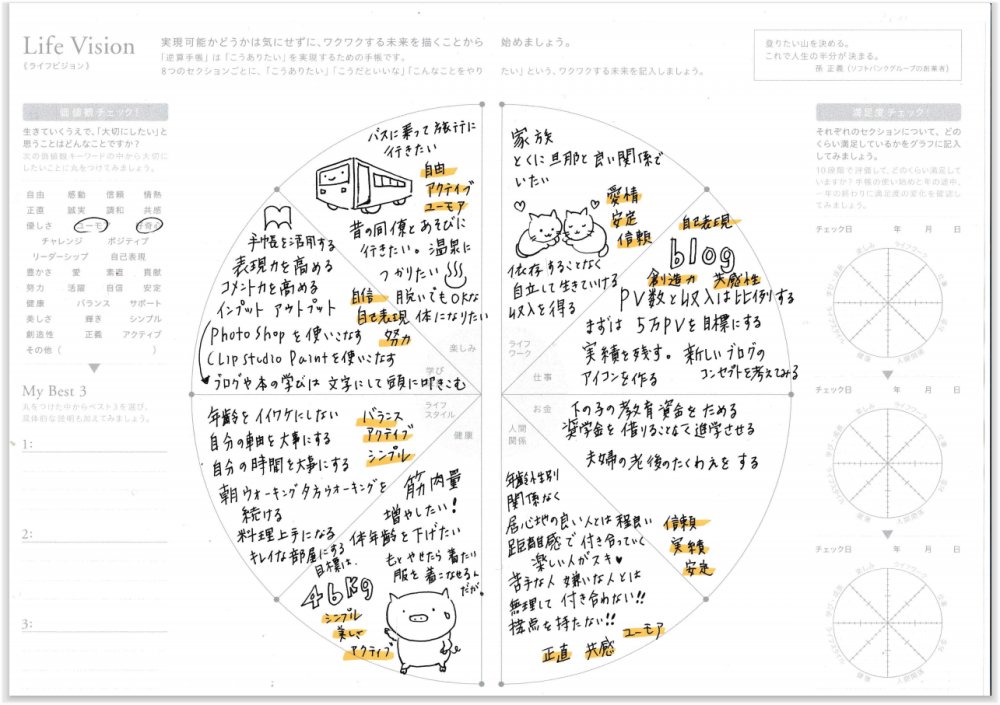 Life Vision
《ライフビジョン》
実現可能かどうかは気にせずに、ワクワクする未来を描くことから 始めましょう。
「逆算手帳」は「こうありたい」を実現するための手帳です。
8つのセクションごとに、「こうありたい」「こうだといいな」「こんなことをやり たい」という、ワクワクする未来を記入しましょう。
登りたい山を決める。
これで人生の半分が決まる。
孫 正義(ソフトバンクグループの創業者)
価値観チェック!
生きていくうえで、「大切にしたい」と
思うことはどんなことですか?
次の価値観キーワードの中から大切に
したいことに丸をつけてみましょう。
自由 感動 信頼 情熱
正直 誠実 調和 共感
優しさ ユーモア 好奇心
チャレンジ ポジティブ
リーダーシップ 自己表現
豊かさ 愛 素直 貢献
努力 活躍 自信 安定
健康 バランス サポート
美しさ 輝き シンプル
創造性 正義 アクティブ
その他( )
My Best 3
丸をつけた中からベスト3を選び、
具体的な説明も加えてみましょう。
1:
2:
3:
バスに乗って旅行に
行きたい
自由
アクティブ
ユーモア
昔の同僚とあそびに
行きたい。温泉に
つかりたい
脱いでもOKな
体になりたい
楽しみ
手帳を活用する
表現力を高める
コメント力を高める
インプット アウトプット
PhotoShopを使いこなす
Clip studio Paintを使いこなす
ブログや本の学びは文字にして頭に叩きこむ
自信
自己表現
努力
学び
年齢をイイワケにしない
自分の軸を大事にする
自分の時間を大事にする
朝ウォーキング夕方ウォーキングを
続ける
料理上手になる
キレイな部屋にする
バランス
アクティブ
シンプル
ライフ
スタイル
健康
筋肉量
増やしたい!
体年齢を下げたい
もとやせたら着たい
服を着こなせるん
だが。
目標は、
46kg
シンプル
美しさ
アクティブ
家族
とくに旦那と良い関係で
いたい
愛情
安定
信頼
依存することなく
自立して生きていける
収入を得る
ライフ
ワーク
自己表現
blog
創造力 共感性
PV数と収入は比例する
まずは 5万PVを目標にする
実績を残す。新しいブログの
アイコンを作る コンセプトを考えてみる
仕事
お金
下の子の教育資金をためる
奨学金を借りることなく進学させる
夫婦の老後のたくわえをする
人間
関係
年齢性別
関係なく
居心地の良い人とは程良い
距離感で付き合っていく
楽しい人がスキ♥
苦手な人 嫌いな人とは
無理して付き合わない!!
接点を持たない!!
信頼
実績
安定
ユーモア
正直 共感
満足度チェック!
それぞれのセクションについて、どの
くらい満足しているかをグラフに記入
してみましょう。
10段階で評価して、どのくらい満足して
いますか?手帳の使い始めと年の途中、
一年の終わりに満足度の変化を確認し
てみましょう。
チェック日 年 月 日
楽しみ
ライフワーク
仕事
お金
人間関係
健康
ライフスタイル
学び
チェック日 年 月 日
楽しみ
ライフワーク
仕事
お金
人間関係
健康
ライフスタイル
学び
チェック日 年 月 日
楽しみ
ライフワーク
仕事
お金
人間関係
健康
ライフスタイル
学び